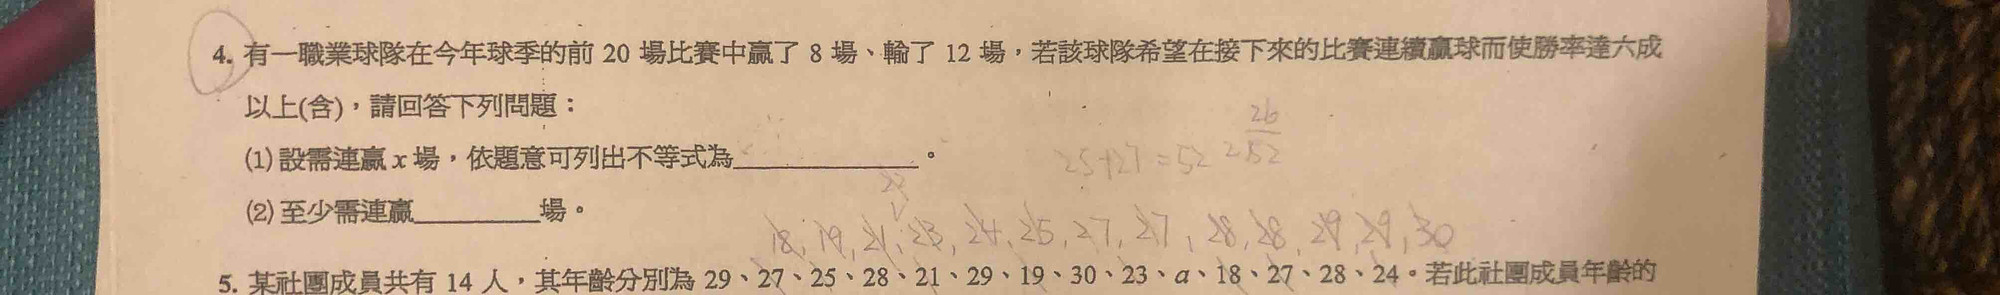 4. 有一職業球隊在今年球季的前 20 場比賽中贏了 8 場、輸了 12 場，若該球隊希望在接下來的比賽連續贏球而使勝率達六成
以上(含)，請回答下列問題：
26
(1) 設需連贏 x 場，依題意可列出不等式為____________。 25+27=52 252
(2) 至少需連贏________場。
18, 19, 21, 23, 24, 25, 27, 27, 28, 28, 29, 29, 30
5. 某社團成員共有 14 人，其年齡分別為 29、27、25、28、21、29、19、30、23、a、18、27、28、24。若此社團成員年齡的